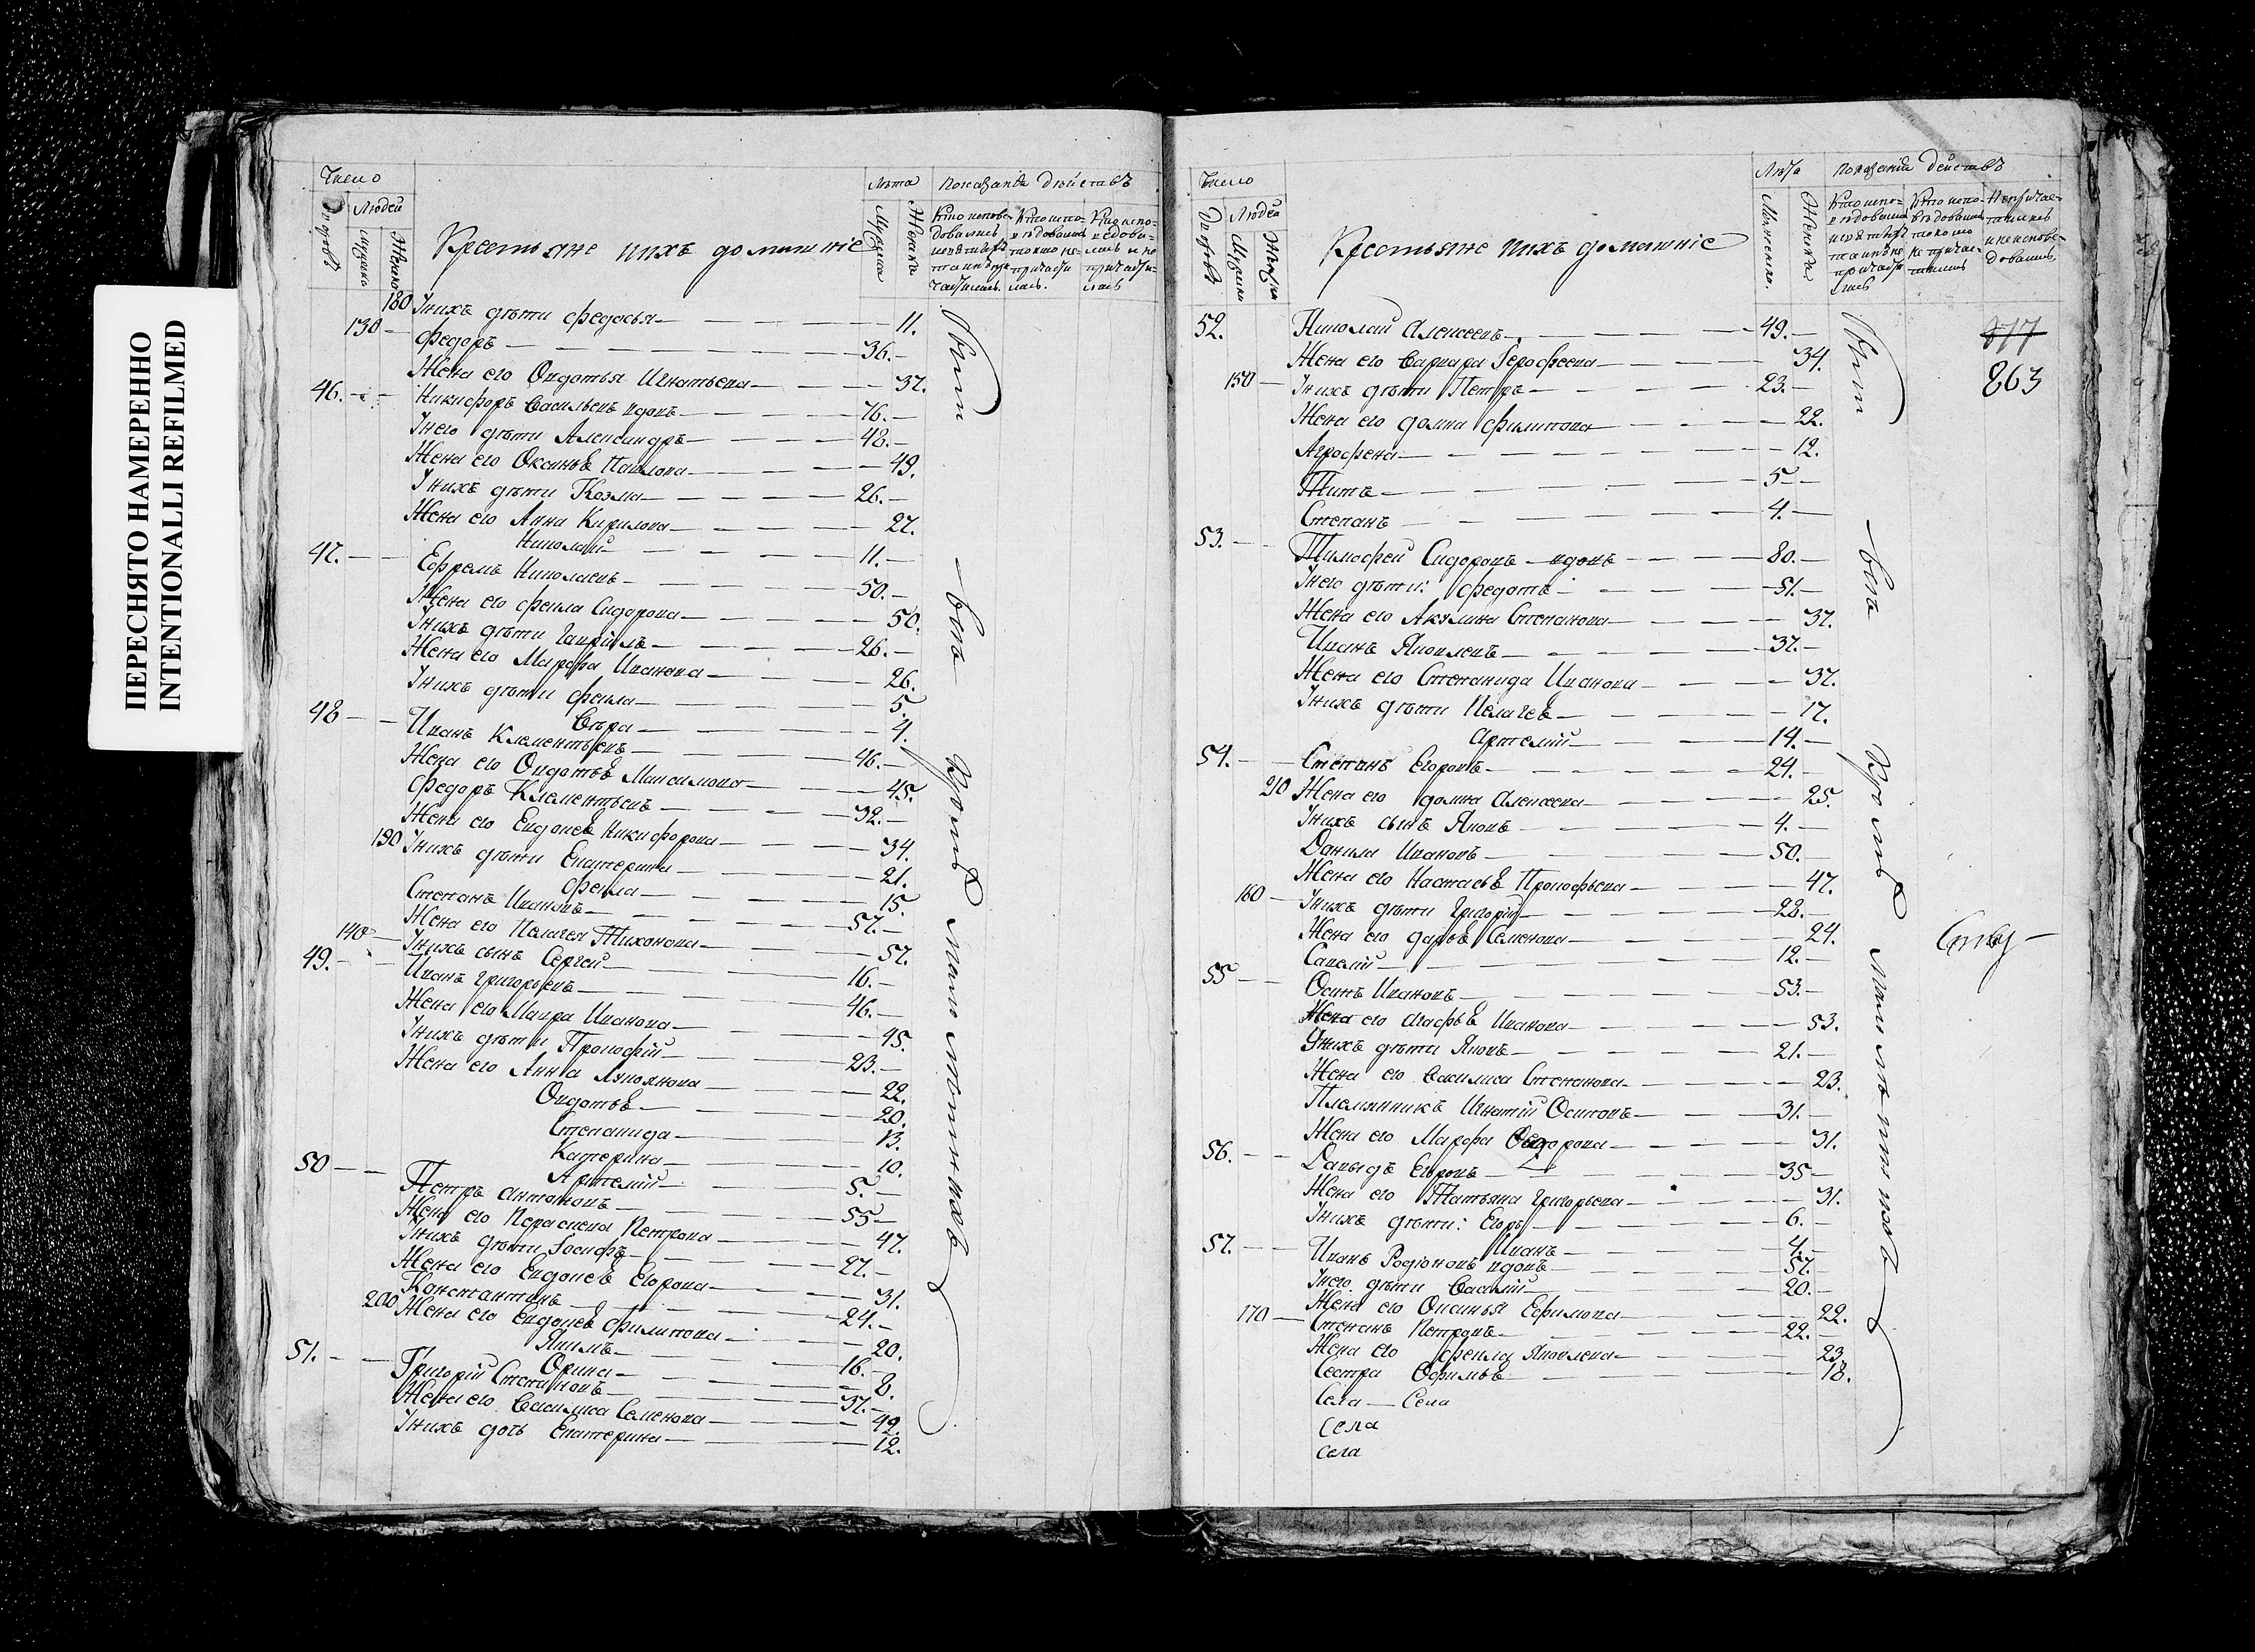 ПЕРЕСНЯТО НАМЕРЕННО
INTENTIONALLI REFILMED
Число
Людей
Крестьяне ихъ домашніе
Лѣта
Показаніе дѣйствъ
180 У нихъ дѣти Федосья 11.
130 Федоръ 36.
Жена его Овдотья Игнатьева 37.
46. Никифоръ Васильевъ вдовъ 76.
У него дѣти Александръ 48.
Жена его Оксинья Павлова 49.
У нихъ дѣти Козма 26.
Жена его Анна Кирилова 27.
Николай 11.
47. Ефремъ Николаевъ 50.
Жена его Фекла Сидорова 50.
У нихъ дѣти Гаврилъ 26.
Жена его Марфа Иванова 26.
У нихъ дѣти Фекла 5.
Вѣра 4.
48 Иванъ Клементьевъ 46.
Жена его Овдотьѣ Максимова 45.
Федоръ Клементьевъ 32.
Жена его Евдокеѣ Никифорова 34.
190 У нихъ дѣти Екатерина 21.
Фекла 15.
Степанъ Ивановъ 57.
Жена его Пелагея Тихонова 57.
140 У нихъ сынъ Сергей 16.
49. Иванъ Григорьевъ 46.
Жена его Мавра Иванова 45.
У нихъ дѣти Прокофій 23.
Жена его Анна Лукоянова 22.
Овдотьѣ 20.
Степанида 13.
Катерина 10.
Артемій 5.
50 Петръ Антоновъ 55
Жена его Параскева Петрова 47.
У нихъ дѣти Іосифъ 27.
Жена его Евдокеѣ Егорова 31.
Константинъ 24.
200 Жена его Евдокеѣ Филипова 20.
Якимъ 16.
Орина 8.
51. Григорій Степановъ 37.
Жена его Василиса Семенова 42.
У нихъ дочь Екатерина 12.
Были
въ
Кромѣ малолѣтнихъ
Число
Людей
Крестьяне ихъ домашніе
Лѣта
Показаніе действъ
817
863
52. Николай Алексеевъ 49.
Жена его Варвара Ерофеева 34.
150 У нихъ дѣти Петръ 23.
Жена его Домна Филипова 22.
Агрофена 12.
Титъ 5
Степанъ 4.
53. Тимофей Сидоровъ вдовъ 80.
У него дѣти: Федотъ 51.
Жена его Акулина Степанова 37.
Иванъ Яковлевъ 37.
Жена его Степанида Иванова 37.
У нихъ дѣти Пелагеѣ 17.
Артемій 14.
54. Степанъ Егоровъ 24.
210 Жена его Домна Алексеева 25.
У нихъ сынъ Яковъ 4.
Данила Ивановъ 50.
Жена его Настасьѣ Прокофьева 47.
160 У нихъ дѣти Григорій 28.
Жена его Дарьѣ Семенова 24.
Савелій 12.
55 Осипъ Ивановъ 53.
Жена его Агафьѣ Иванова 53.
У нихъ дѣти Яковъ 21.
Жена его Василиса Степанова 23.
Племянникъ Игнатій Осиповъ 31.
Жена его Марфа 31.
56. Давыдъ Егоровъ 35
Жена его Татьяна Григорьева 31.
У нихъ дѣти: Егоръ 6.
Иванъ 4.
57. Иванъ Родіоновъ вдовъ 57.
У него дѣти Василій 20.
Жена его Оксинья Ефимова 22.
170 Степанъ Петровъ 22.
Жена его Фекла Яковлева 23.
Сестра Офимьѣ 18.
Села Села
Села
Села
Были
въ
Кромѣ малолѣтнихъ